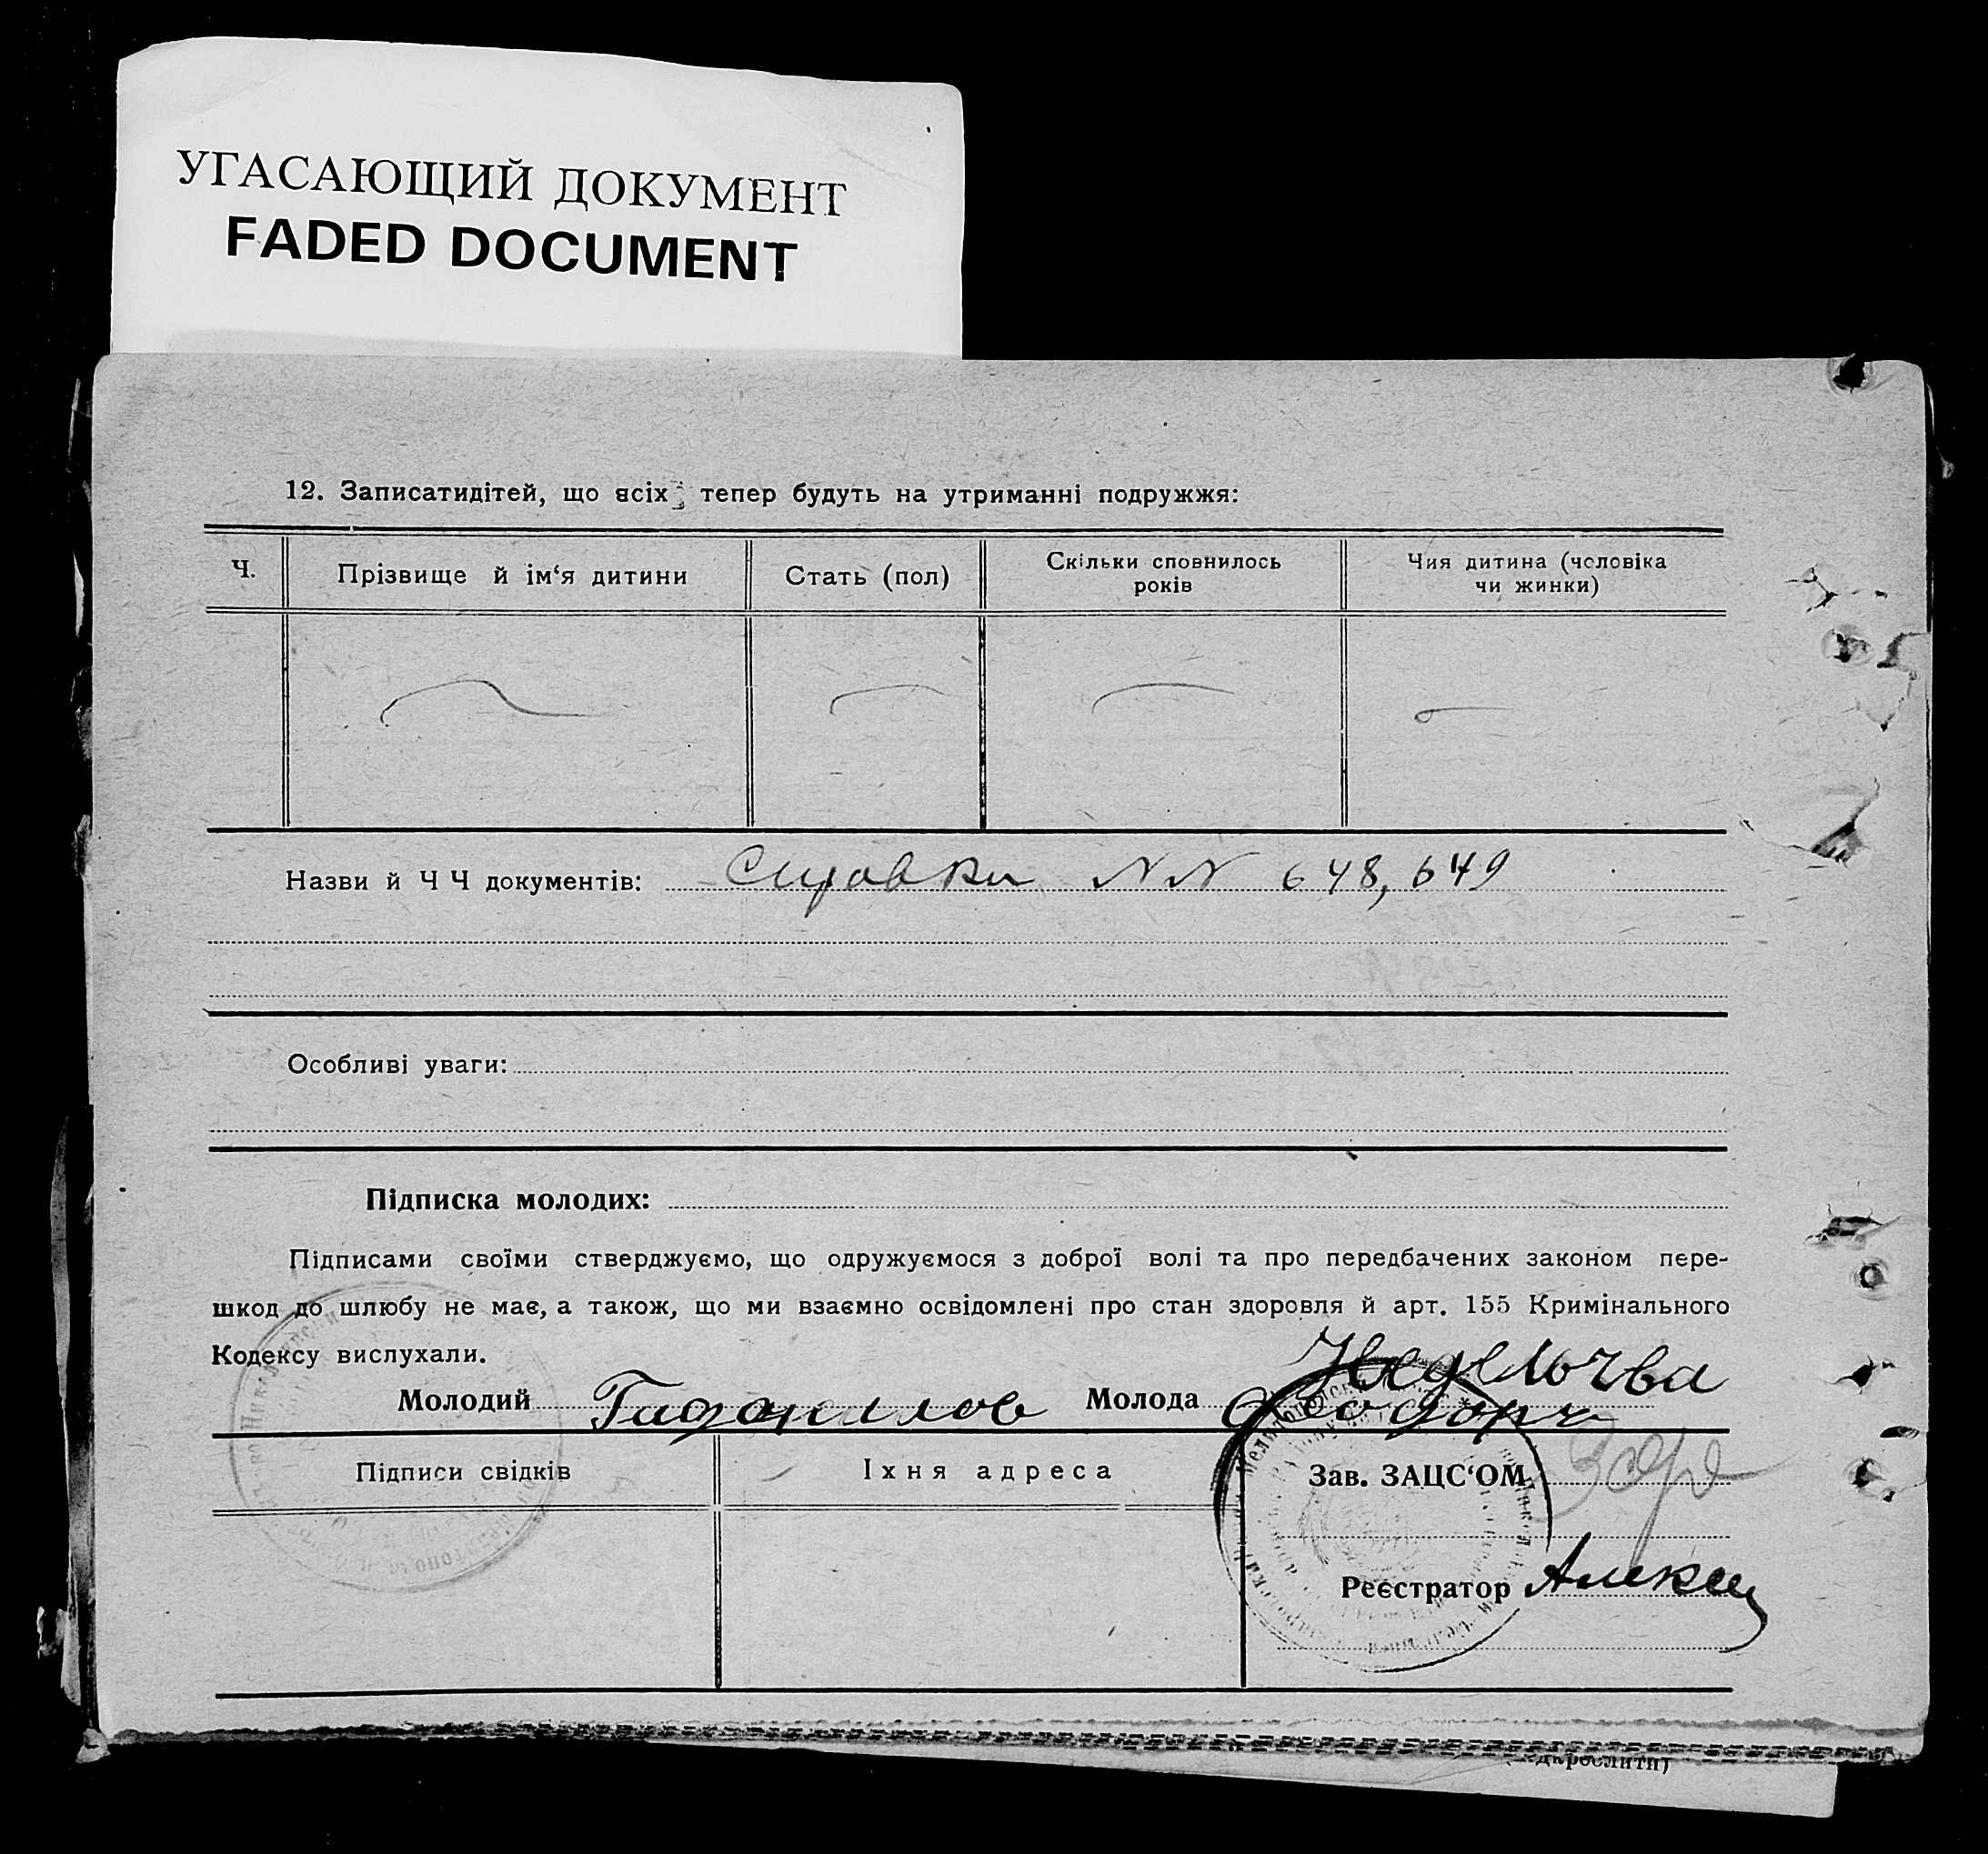 УГАСАЮЩИЙ ДОКУМЕНТ
FADED DOCUMENT
12. Записатидітей, що всіх тепер будуть на утриманні подружжя:
Ч.
Прізвище й ім‘я дитини
Стать (пол)
Скільки сповнилось
років
Чия дитина (чоловіка
чи жинки)
Назви й Ч Ч документів: Справки NN 648, 649
Особливі уваги:
Підписка молодих:
Підписами своїми стверджуємо, що одружуємося з доброї волі та про передбачених законом пере-
шкод до шлюбу не має, а також, що ми взаємно освідомлені про стан здоровля й арт. 155 Кримінального
Кодексу вислухали.
Молодий
Молода
Підписи свідків
Їхня адреса
Зав. ЗАЦС‘ОМ
Реєстратор Алексе